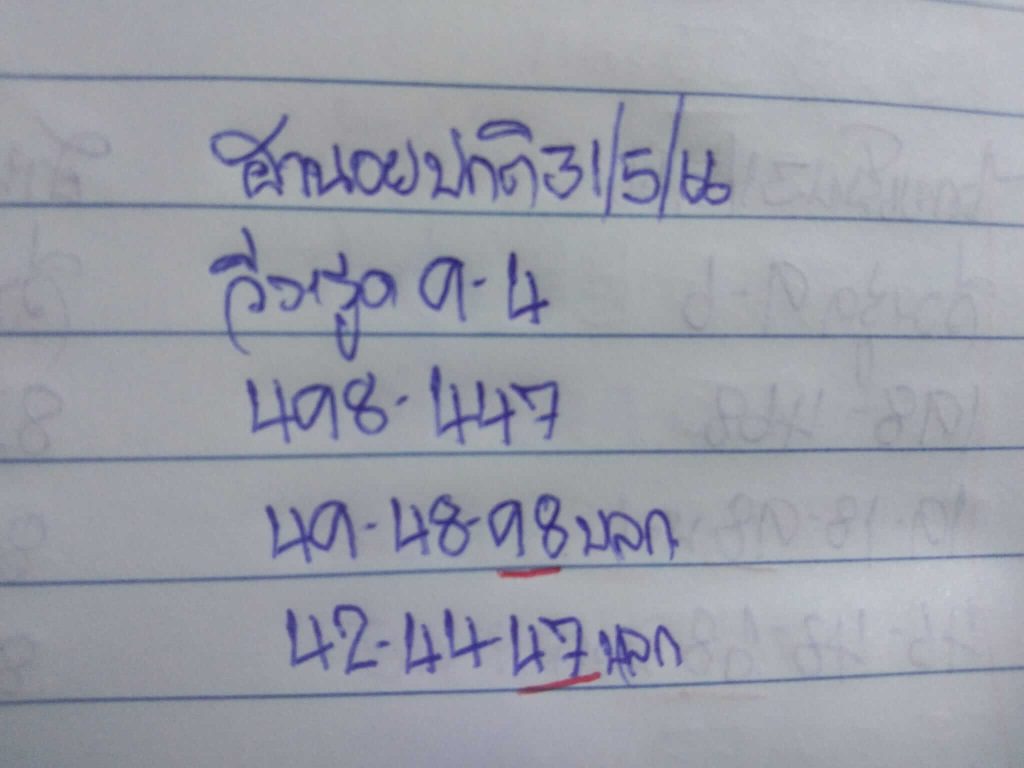 ฮานอยปกติ 31/5/
วิ่งรูด 9-4
498-447
49-48-98 บลก
42-44-47 บลก